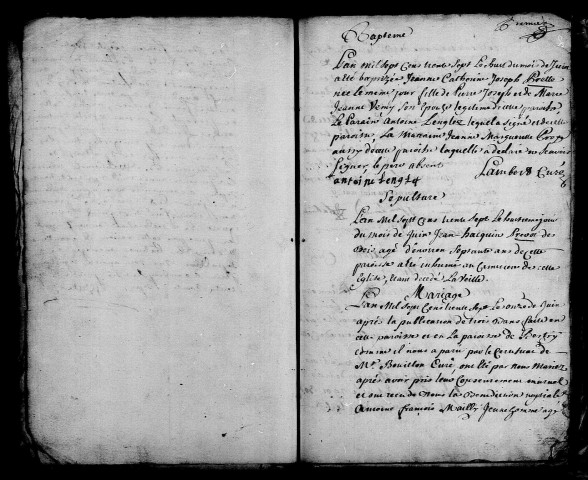 Premier
Bapteme
L'an mil sept cens trente sept le huit du mois de Juin
a été baptizée Jeanne Catherine Joseph
née le meme jour fille de Pierre Joseph et de Marie
Jeanne Son Epouse legitime de cette paroisse
Le Parain Antoine Lenglez lequel a signé et de cette
paroisse La Maraine Jeanne Marguerite
aussy de cette paroisse laquelle a declaré ne scavoir
Signer, le père absent
Lambor Curé
antoine Lenglet
Sepulture
L'an Mil Sept Cens trente Sept Le huitieme jour
du mois de Juin Jean Jacques de
Bois agé d'environ Septante ans de cette
paroisse a été inhumé au Cimetiere de cette
Eglise, étant decedé La veille.
Mariage
L'an Mil Sept Cens trente Sept Le onze de Juin
après la publication de trois Bans faite en
cette paroisse et en la paroisse de
comme il nous a paru par le Certificat de
Mr. Bouillon Curé, ont été par nous Mariez
après avoir pris leur Consentement mutuel
et ont receu de Nous la Benediction nuptiale
Antoine François Mailly Jeune homme agé